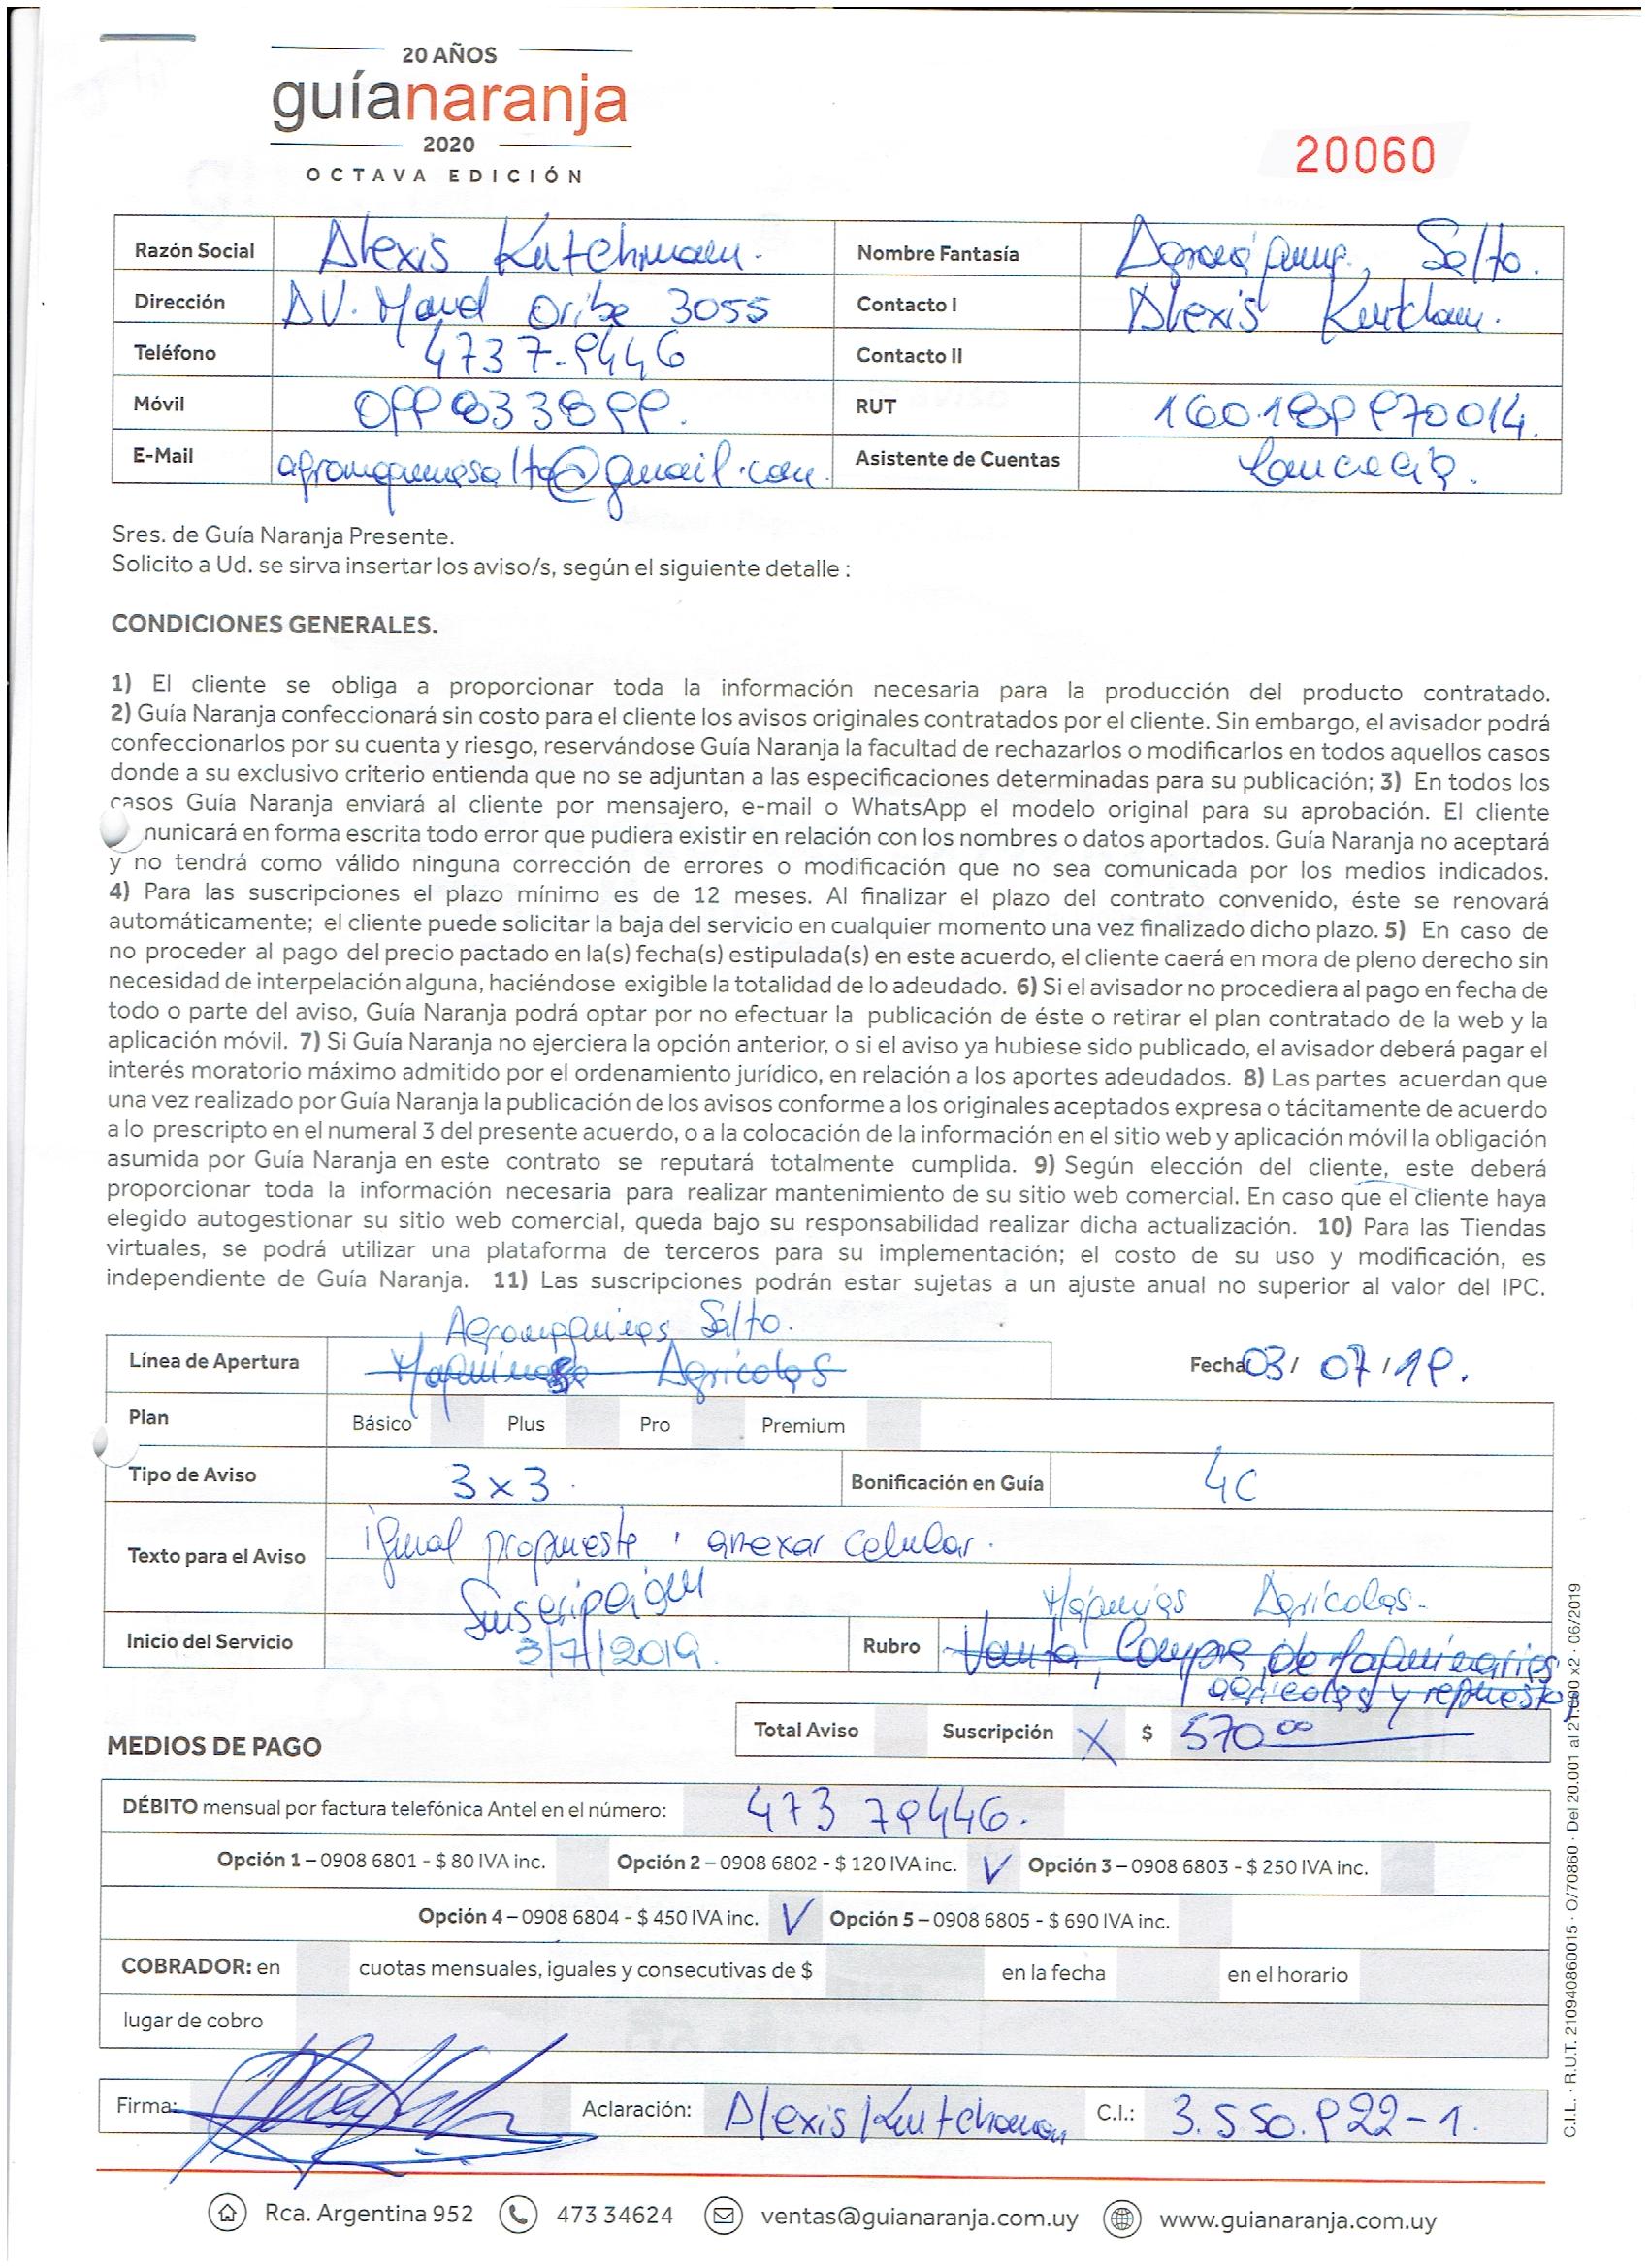 20 AÑOS
guíanaranja
2020
OCTAVA EDICIÓN
20060
Razón Social Alexis Kutchmam. Nombre Fantasía Salto.
Dirección AV. Manuel Oribe 3055 Contacto I Alexis
Teléfono 4737-9446 Contacto II
Móvil 099833899. RUT 160189970014.
E-Mail agromaquinasalto@gmail.com. Asistente de Cuentas
Sres. de Guía Naranja Presente.
Solicito a Ud. se sirva insertar los aviso/s, según el siguiente detalle :
CONDICIONES GENERALES.
1) El cliente se obliga a proporcionar toda la información necesaria para la producción del producto contratado.
2) Guía Naranja confeccionará sin costo para el cliente los avisos originales contratados por el cliente. Sin embargo, el avisador podrá
confeccionarlos por su cuenta y riesgo, reservándose Guía Naranja la facultad de rechazarlos o modificarlos en todos aquellos casos
donde a su exclusivo criterio entienda que no se adjuntan a las especificaciones determinadas para su publicación; 3) En todos los
casos Guía Naranja enviará al cliente por mensajero, e-mail o WhatsApp el modelo original para su aprobación. El cliente
municará en forma escrita todo error que pudiera existir en relación con los nombres o datos aportados. Guía Naranja no aceptará
y no tendrá como válido ninguna corrección de errores o modificación que no sea comunicada por los medios indicados.
4) Para las suscripciones el plazo mínimo es de 12 meses. Al finalizar el plazo del contrato convenido, éste se renovará
automáticamente; el cliente puede solicitar la baja del servicio en cualquier momento una vez finalizado dicho plazo. 5) En caso de
no proceder al pago del precio pactado en la(s) fecha(s) estipulada(s) en este acuerdo, el cliente caerá en mora de pleno derecho sin
necesidad de interpelación alguna, haciéndose exigible la totalidad de lo adeudado. 6) Si el avisador no procediera al pago en fecha de
todo o parte del aviso, Guía Naranja podrá optar por no efectuar la publicación de éste o retirar el plan contratado de la web y la
aplicación móvil. 7) Si Guía Naranja no ejerciera la opción anterior, o si el aviso ya hubiese sido publicado, el avisador deberá pagar el
interés moratorio máximo admitido por el ordenamiento jurídico, en relación a los aportes adeudados. 8) Las partes acuerdan que
una vez realizado por Guía Naranja la publicación de los avisos conforme a los originales aceptados expresa o tácitamente de acuerdo
a lo prescripto en el numeral 3 del presente acuerdo, o a la colocación de la información en el sitio web y aplicación móvil la obligación
asumida por Guía Naranja en este contrato se reputará totalmente cumplida. 9) Según elección del cliente, este deberá
proporcionar toda la información necesaria para realizar mantenimiento de su sitio web comercial. En caso que el cliente haya
elegido autogestionar su sitio web comercial, queda bajo su responsabilidad realizar dicha actualización. 10) Para las Tiendas
virtuales, se podrá utilizar una plataforma de terceros para su implementación; el costo de su uso y modificación, es
independiente de Guía Naranja. 11) Las suscripciones podrán estar sujetas a un ajuste anual no superior al valor del IPC.
Agromaquinas Salto.
Línea de Apertura Maquinas Agrícolas Fecha 03/ 07 /19.
Plan Básico Plus Pro Premium
Tipo de Aviso 3x3. Bonificación en Guía 4C
Texto para el Aviso igual propueste, anexar celular.
Suscripción Máquinas Agrícolas.
Inicio del Servicio 3/7/2019. Rubro Venta, Compra de Maquinarias
agricolas y repuestos
Total Aviso Suscripción X $ 570.00
MEDIOS DE PAGO
DÉBITO mensual por factura telefónica Antel en el número: 473 79446.
Opción 1 – 0908 6801 - $ 80 IVA inc. Opción 2 – 0908 6802 - $ 120 IVA inc. V Opción 3 – 0908 6803 - $ 250 IVA inc.
Opción 4 – 0908 6804 - $ 450 IVA inc. V Opción 5 – 0908 6805 - $ 690 IVA inc.
COBRADOR: en cuotas mensuales, iguales y consecutivas de $ en la fecha en el horario
lugar de cobro
Firma: Aclaración: Alexis Kutchman C.I.: 3.550.922-1.
C.I.L. · R.U.T. 210940860015 · O/70860 · Del 20.001 al 21.000 x2 · 06/2019
Rca. Argentina 952 473 34624 ventas@guianaranja.com.uy www.guianaranja.com.uy